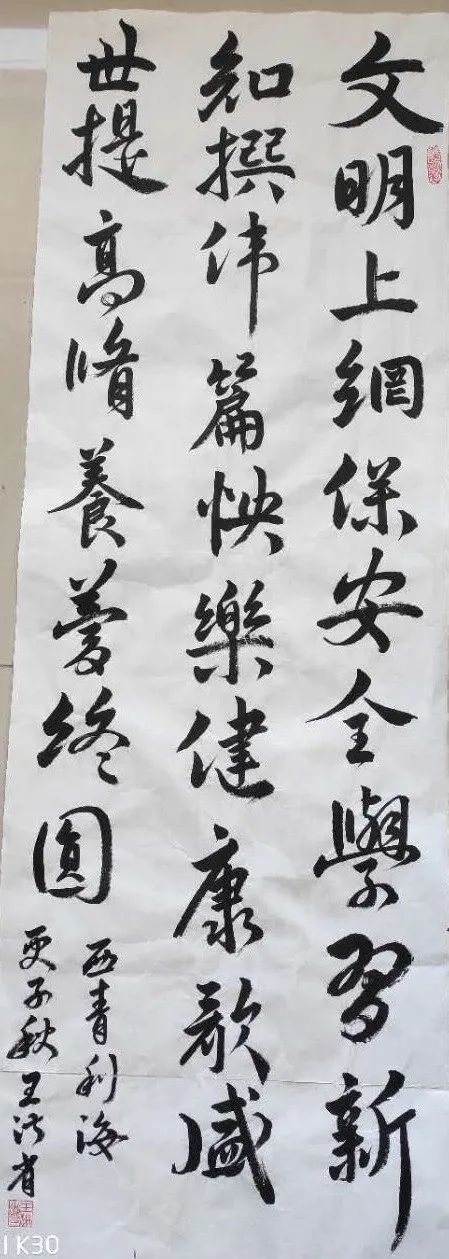 文明上網保安全學習新
知撰伟篇快樂健康歌盛
世提高脩養夢終圓
西青利海
庚子秋王
K30